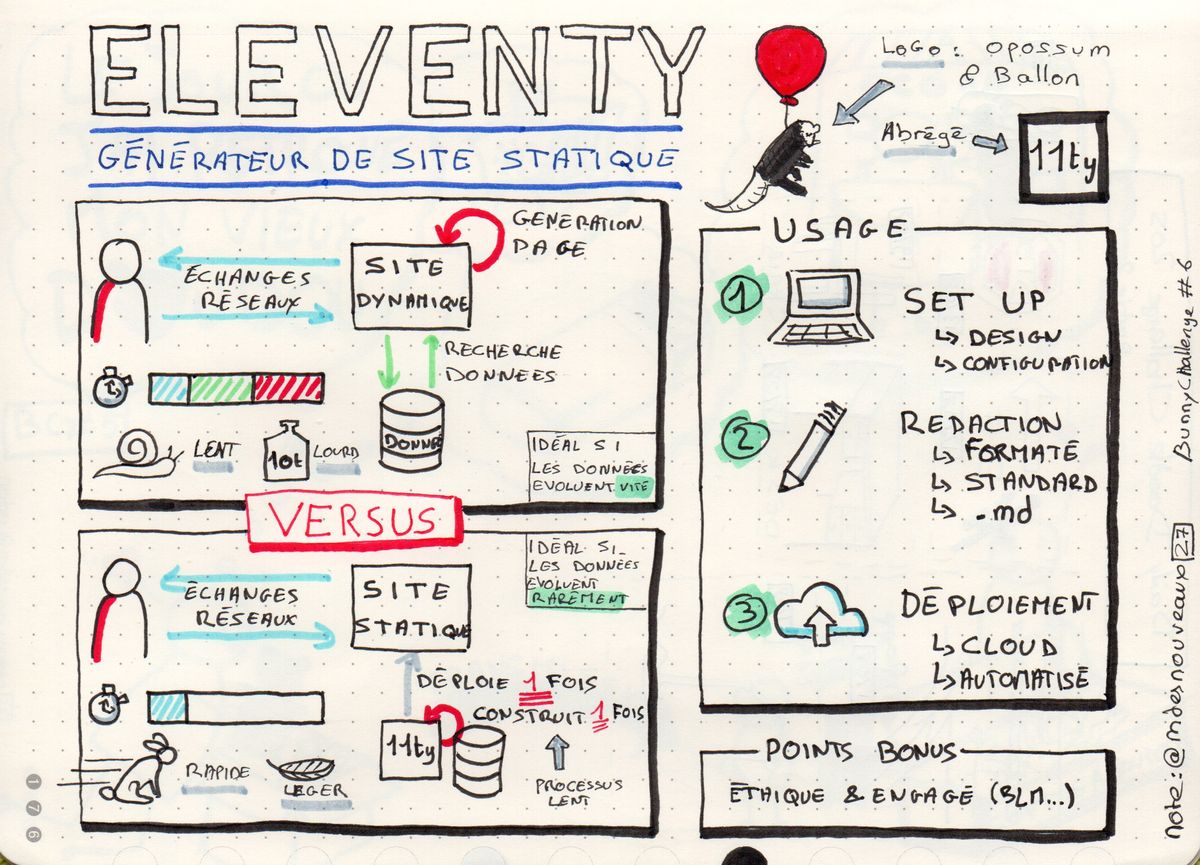 ELEVENTY
GÉNÉRATEUR DE SITE STATIQUE
LOGO : OPOSSUM
& BALLON
ABRÉGÉ
11ty
GENERATION
PAGE
SITE
DYNAMIQUE
ÉCHANGES
RÉSEAUX
RECHERCHE
DONNÉES
DONNÉE
LENT
10t
LOURD
IDÉAL SI
LES DONNÉES
EVOLUENT VITE
VERSUS
IDÉAL SI
LES DONNÉES
EVOLUENT
RAREMENT
ÉCHANGES
RÉSEAUX
SITE
STATIQUE
DÉPLOIE 1 FOIS
CONSTRUIT 1 FOIS
11ty
PROCESSUS
LENT
RAPIDE
LEGER
USAGE
1
SET UP
↳ DESIGN
↳ CONFIGURATION
2
REDACTION
↳ FORMATÉ
↳ STANDARD
↳ .md
3
DÉPLOIEMENT
↳ CLOUD
↳ AUTOMATISÉ
POINTS BONUS
ÉTHIQUE & ENGAGÉ (BLM...)
note:@mdesnouveaux 27 BunnyChallenge #6
176